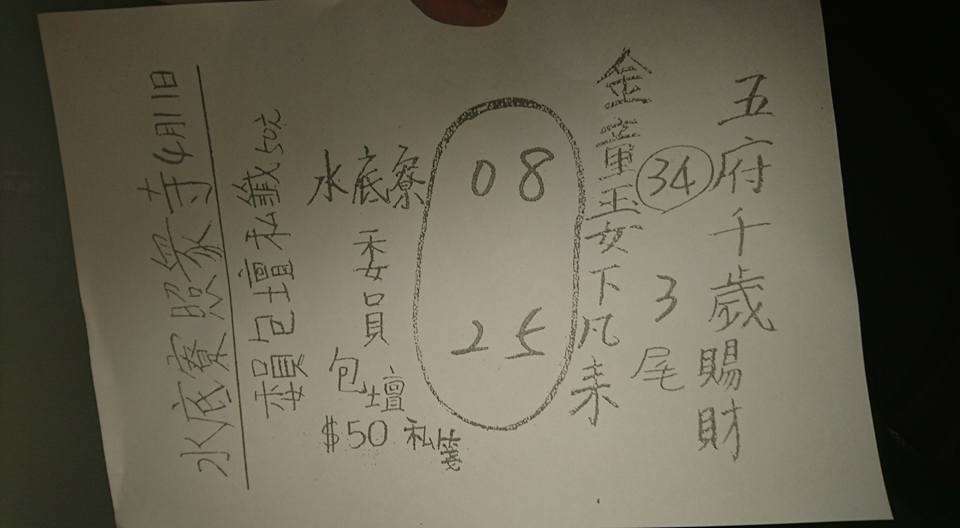 五府千歲賜財
34
3尾
金童玉女下凡來
08
25
水底寮
委員
包壇
$50 私籤
委員包壇私籤50元
水底寮照眾寺4月11日